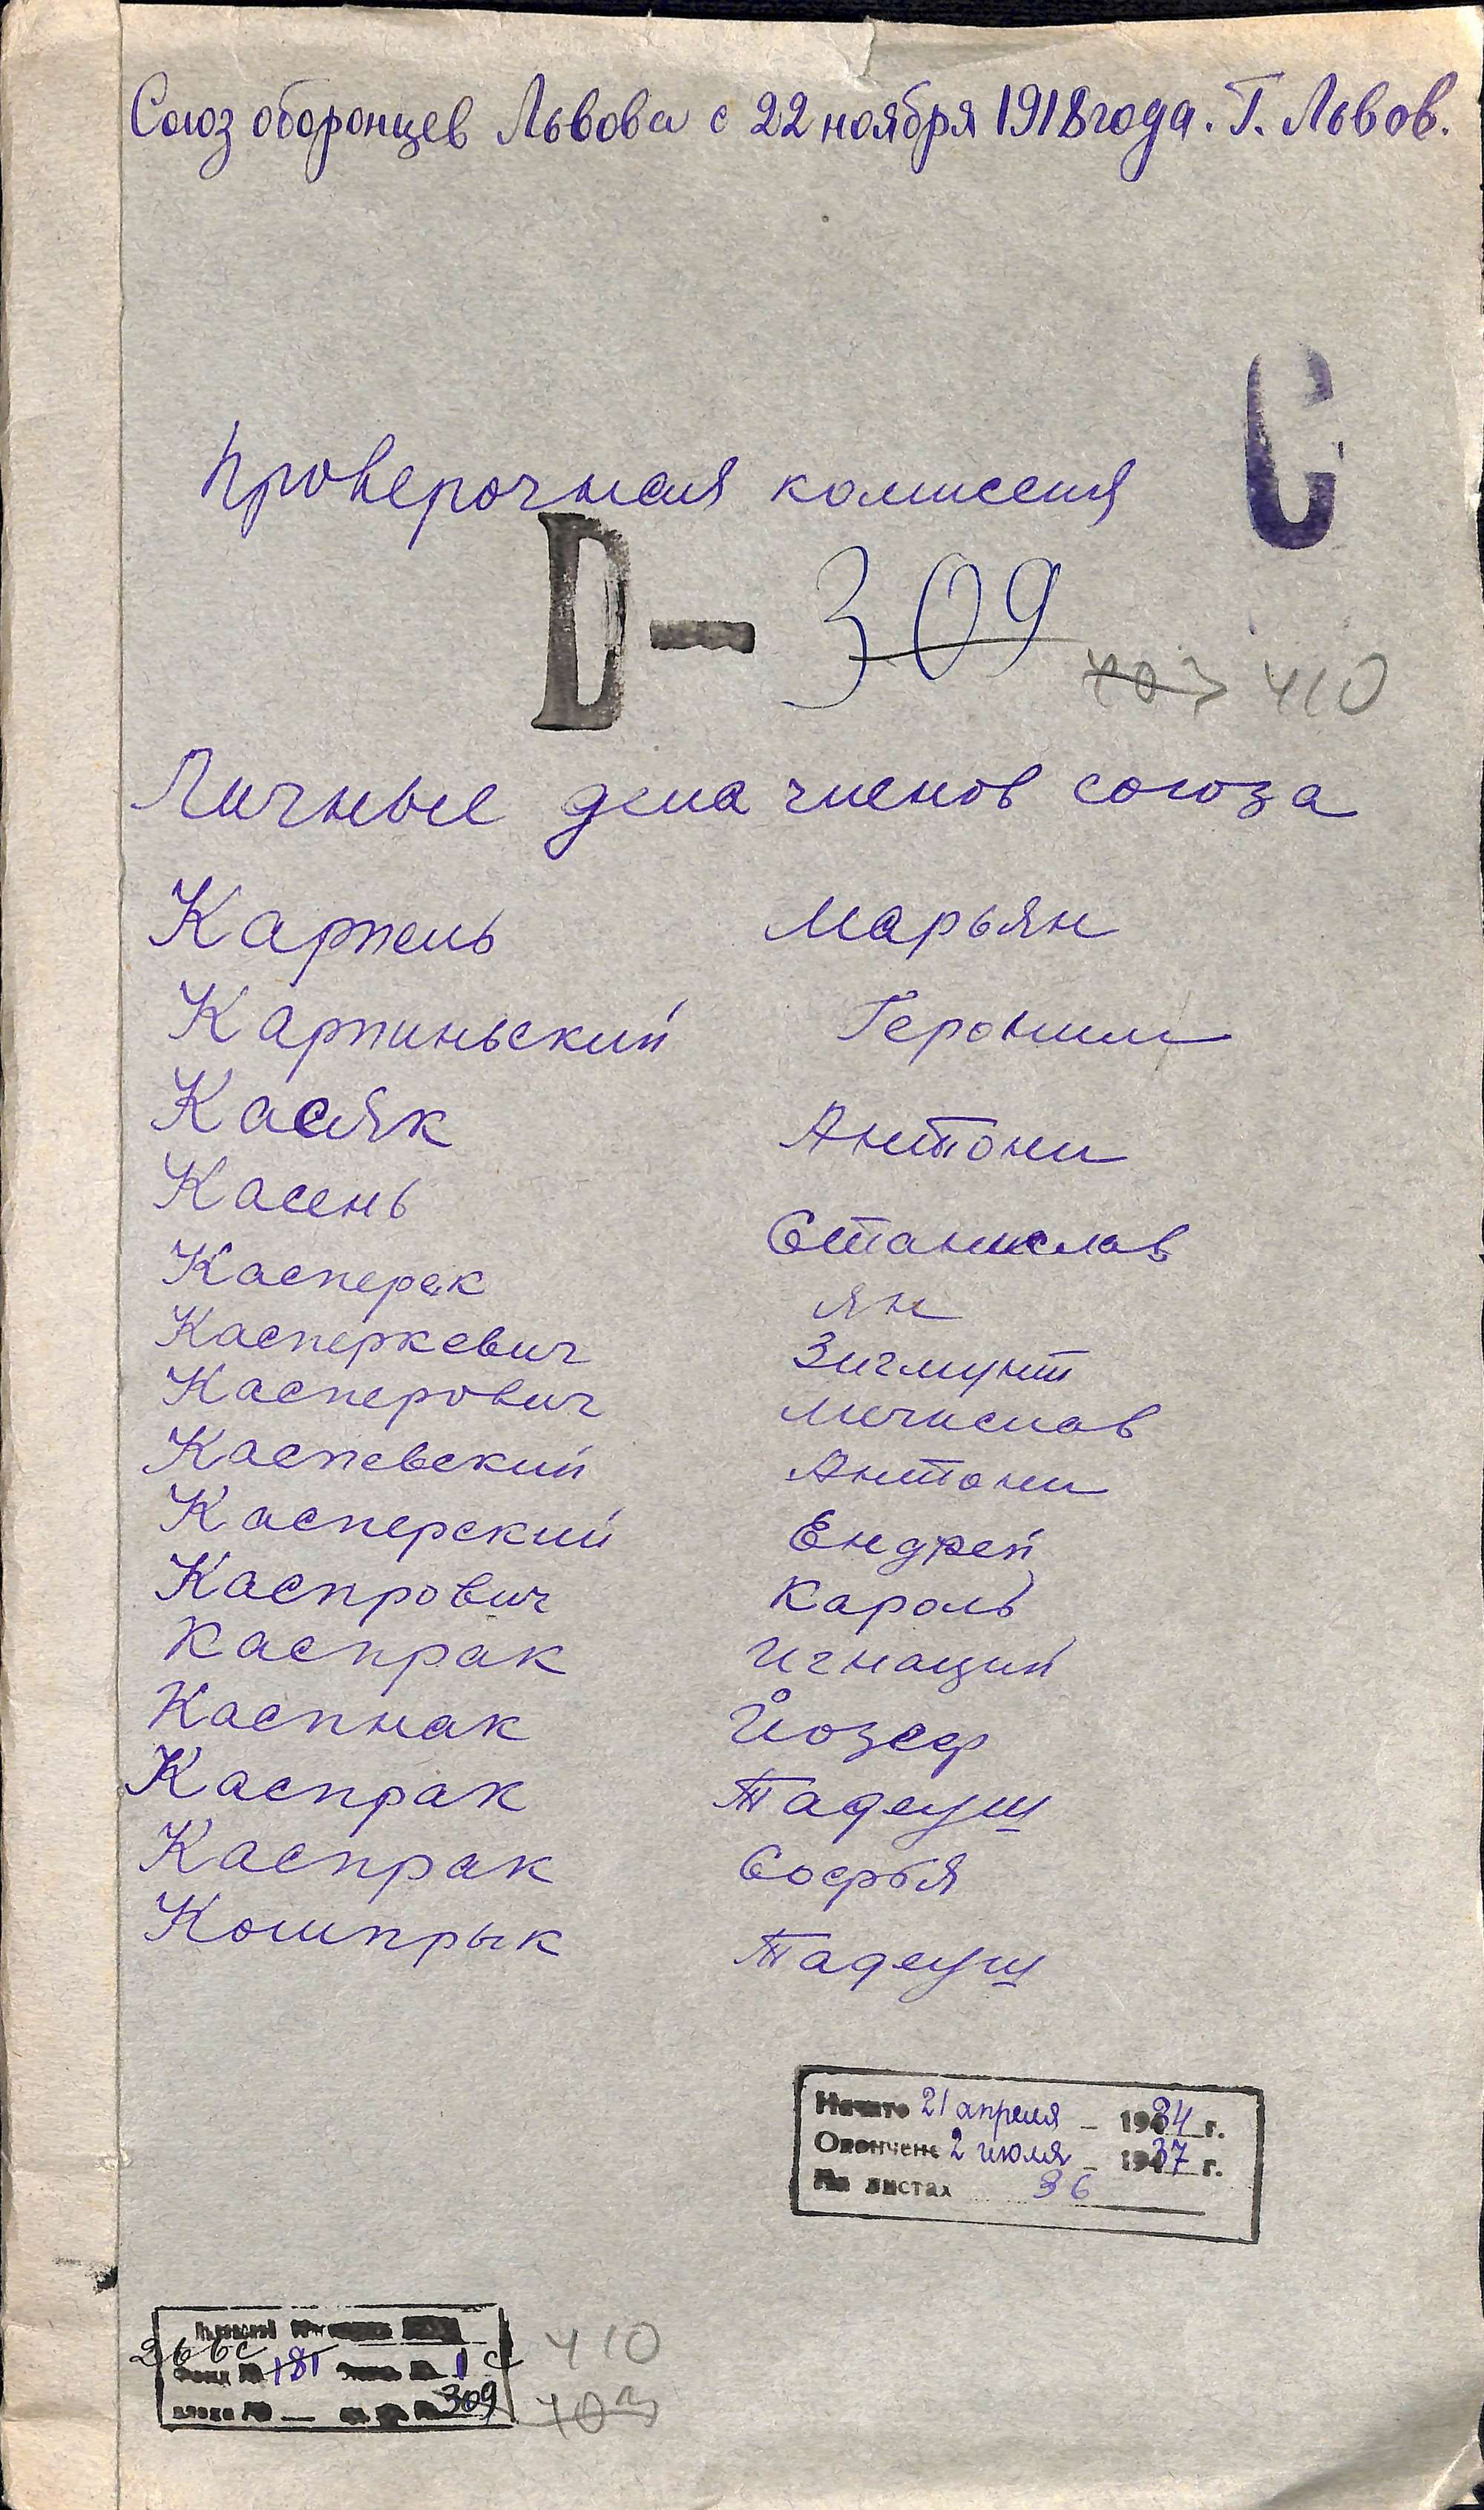 Союз оборонцев Львова с 22 ноября 1918 года. Г. Львов.
С
Проверочная комиссия
D — 309
403 410
Личные дела членов союза
Карпель Марьян
Карпиньский Героним
Касяк Антони
Касень Станислав
Касперек Ян
Касперкевич Зигмунт
Касперович Мечислав
Каспевский Антони
Касперский Ендрей
Каспрович Кароль
Каспрак Игнаций
Каспнак Йозеф
Каспрак Тадеуш
Каспрак Софья
Кошпрык Тадеуш
Начато 21 апреля – 1934 г.
Окончено 2 июля – 1937 г.
На листах 36
266с
Фонд № 181 № 1 с
309
410
403